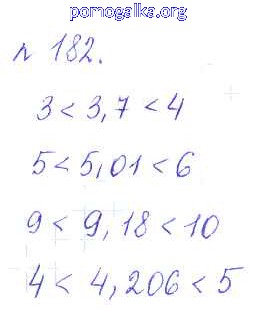 pomogalka.org
n 182.
3 < 3,7 < 4
5 < 5,01 < 6
9 < 9,18 < 10
4 < 4,206 < 5